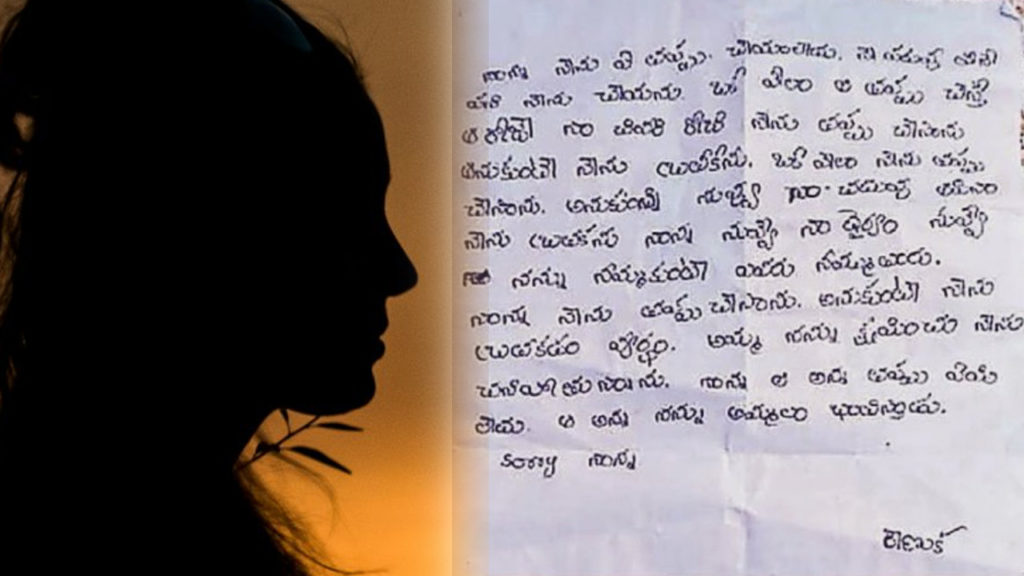 నాన్న నేను ఏ తప్పు. చేయలేదు. నీ పరువు తీసే
పని నేను చేయను. ఒక వేళ ఆ తప్పు చేస్తే
ఆ రోజే నా చివరి రోజు నేను తప్పు చేసాను
అనుకుంటే నేను బ్రతకను. ఒక వేళ నేను తప్పు
చేసాను. అనుకుంటే నువ్వే నా
నేను బ్రతకను నాన్న నువ్వే నా ధైర్యం నువ్వే
నన్ను నమ్మకుంటే ఎవరు నమ్ముతారు.
నాన్న నేను తప్పు చేసాను. అనుకుంటే నేను
బ్రతకడం వ్యర్థం. అమ్మ నన్ను క్షమించు నేను
చనిపోతున్నాను. నాన్న ఆ అన్న తప్పు ఏమి
లేదు. ఆ అన్న నన్ను అమ్మలా భావిస్తాడు.
sorry నాన్న
రేణుక